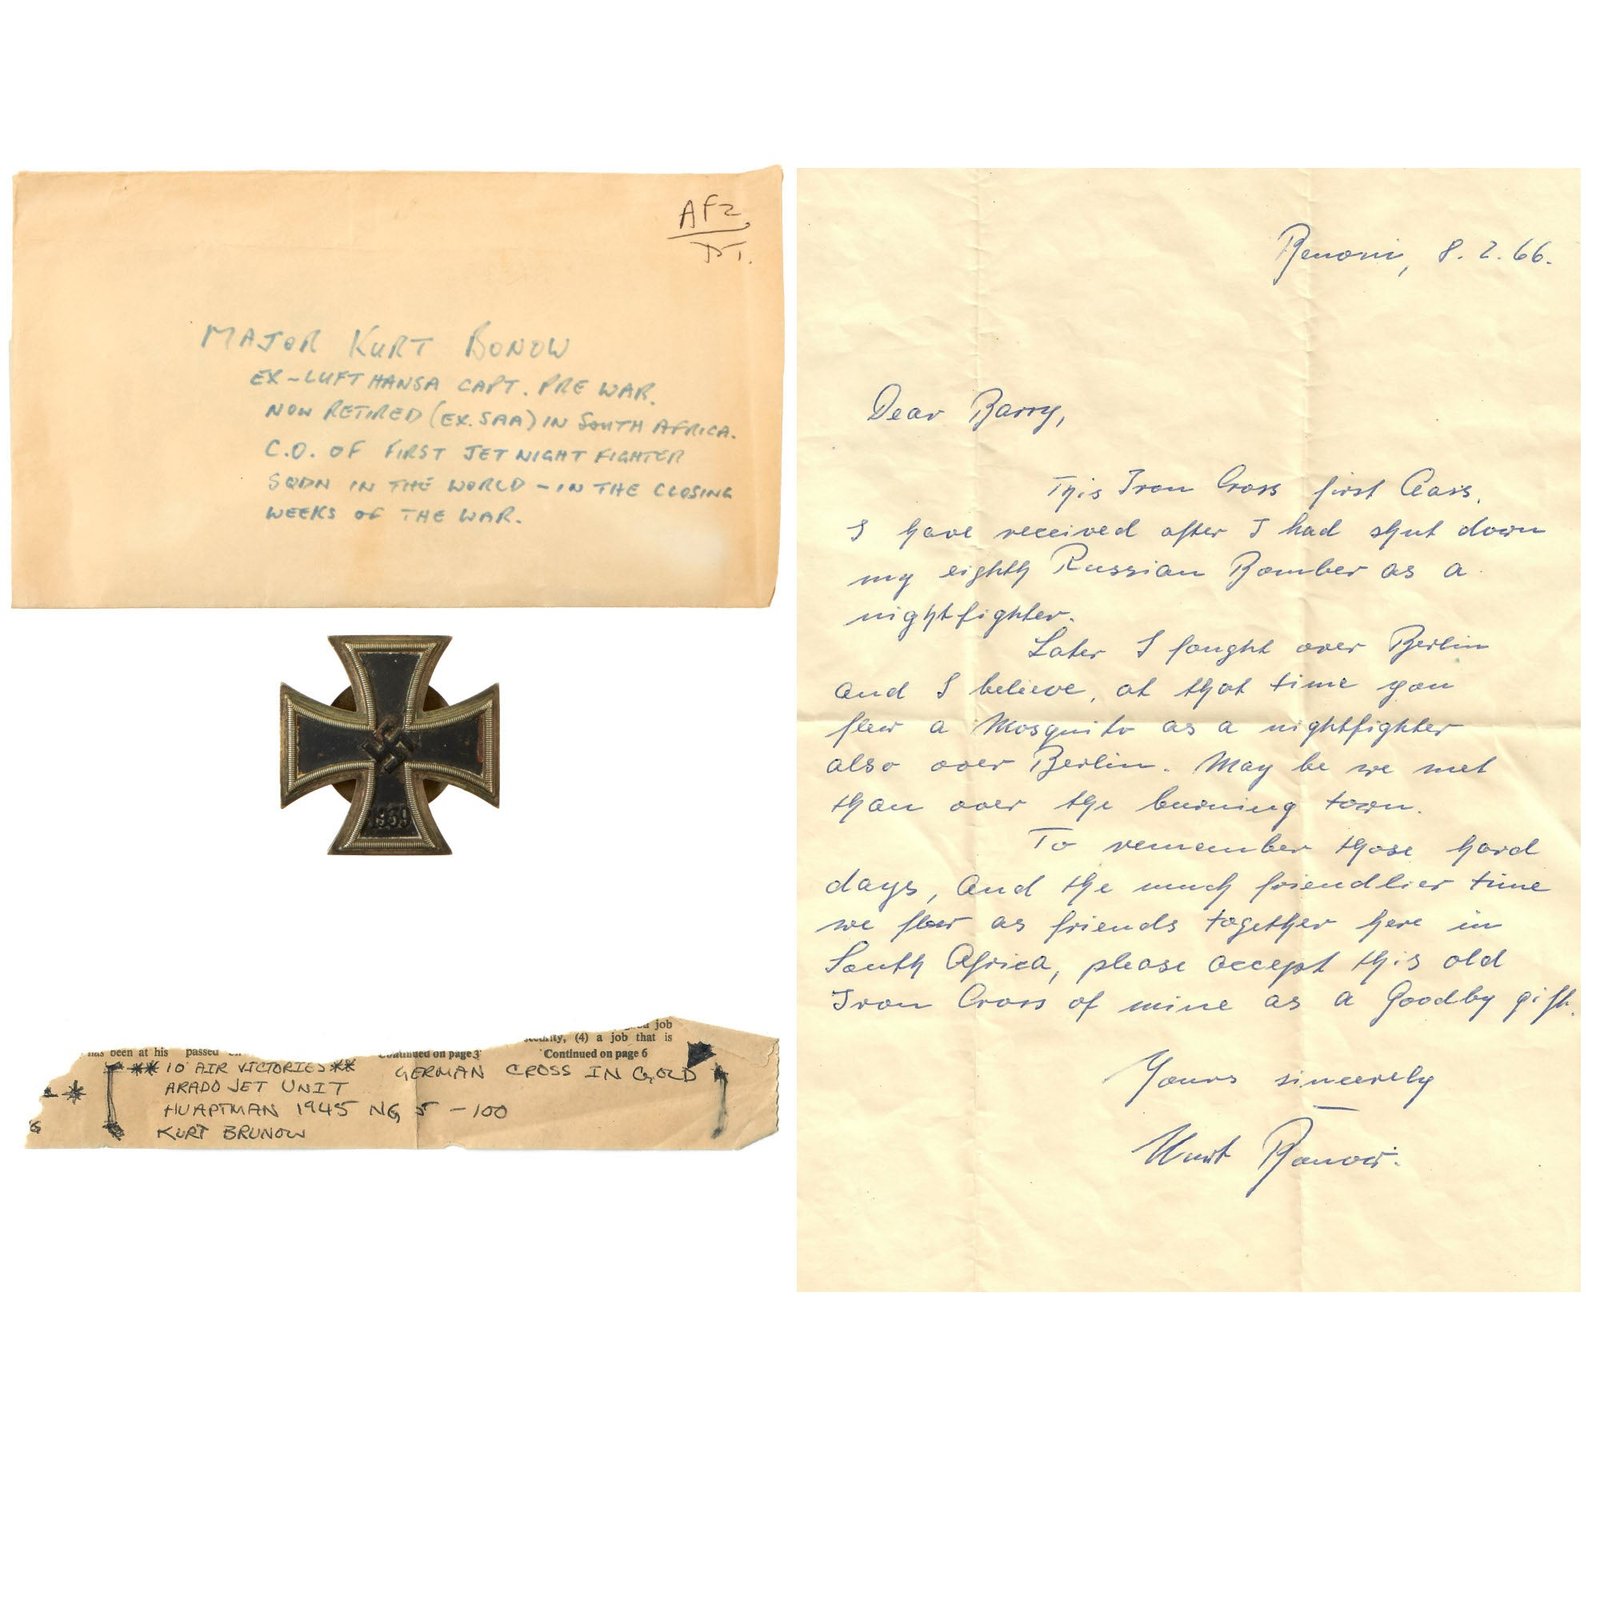 AF2
MAJOR KURT BONOW
EX-LUFTHANSA CAPT. PRE WAR.
NOW RETIRED (EX. SAA) IN SOUTH AFRICA.
C.O. OF FIRST JET NIGHT FIGHTER
SQDN IN THE WORLD - IN THE CLOSING
WEEKS OF THE WAR.
1939
job
security, (4) a job that is
has been at his passed
Continued on page 3
Continued on page 6
** 10 AIR VICTORIES ** GERMAN CROSS IN GOLD
ARADO JET UNIT
HUAPTMAN 1945 NG 5 - 100
KURT BRUNOW
Benoni, 8. 2. 66.
Dear Barry,
This Iron Cross first Class,
I have received after I had shut down
my eighth Russian Bomber as a
nightfighter.
Later I fought over Berlin
and I believe, at that time you
flew a Mosquito as a nightfighter
also over Berlin. May be we met
than over the burning town.
To remember those hard
days, and the much friendlier time
we flew as friends together here in
South Africa, please accept this old
Iron Cross of mine as a Goodby gift.
Yours sincerely
Kurt Bonow.